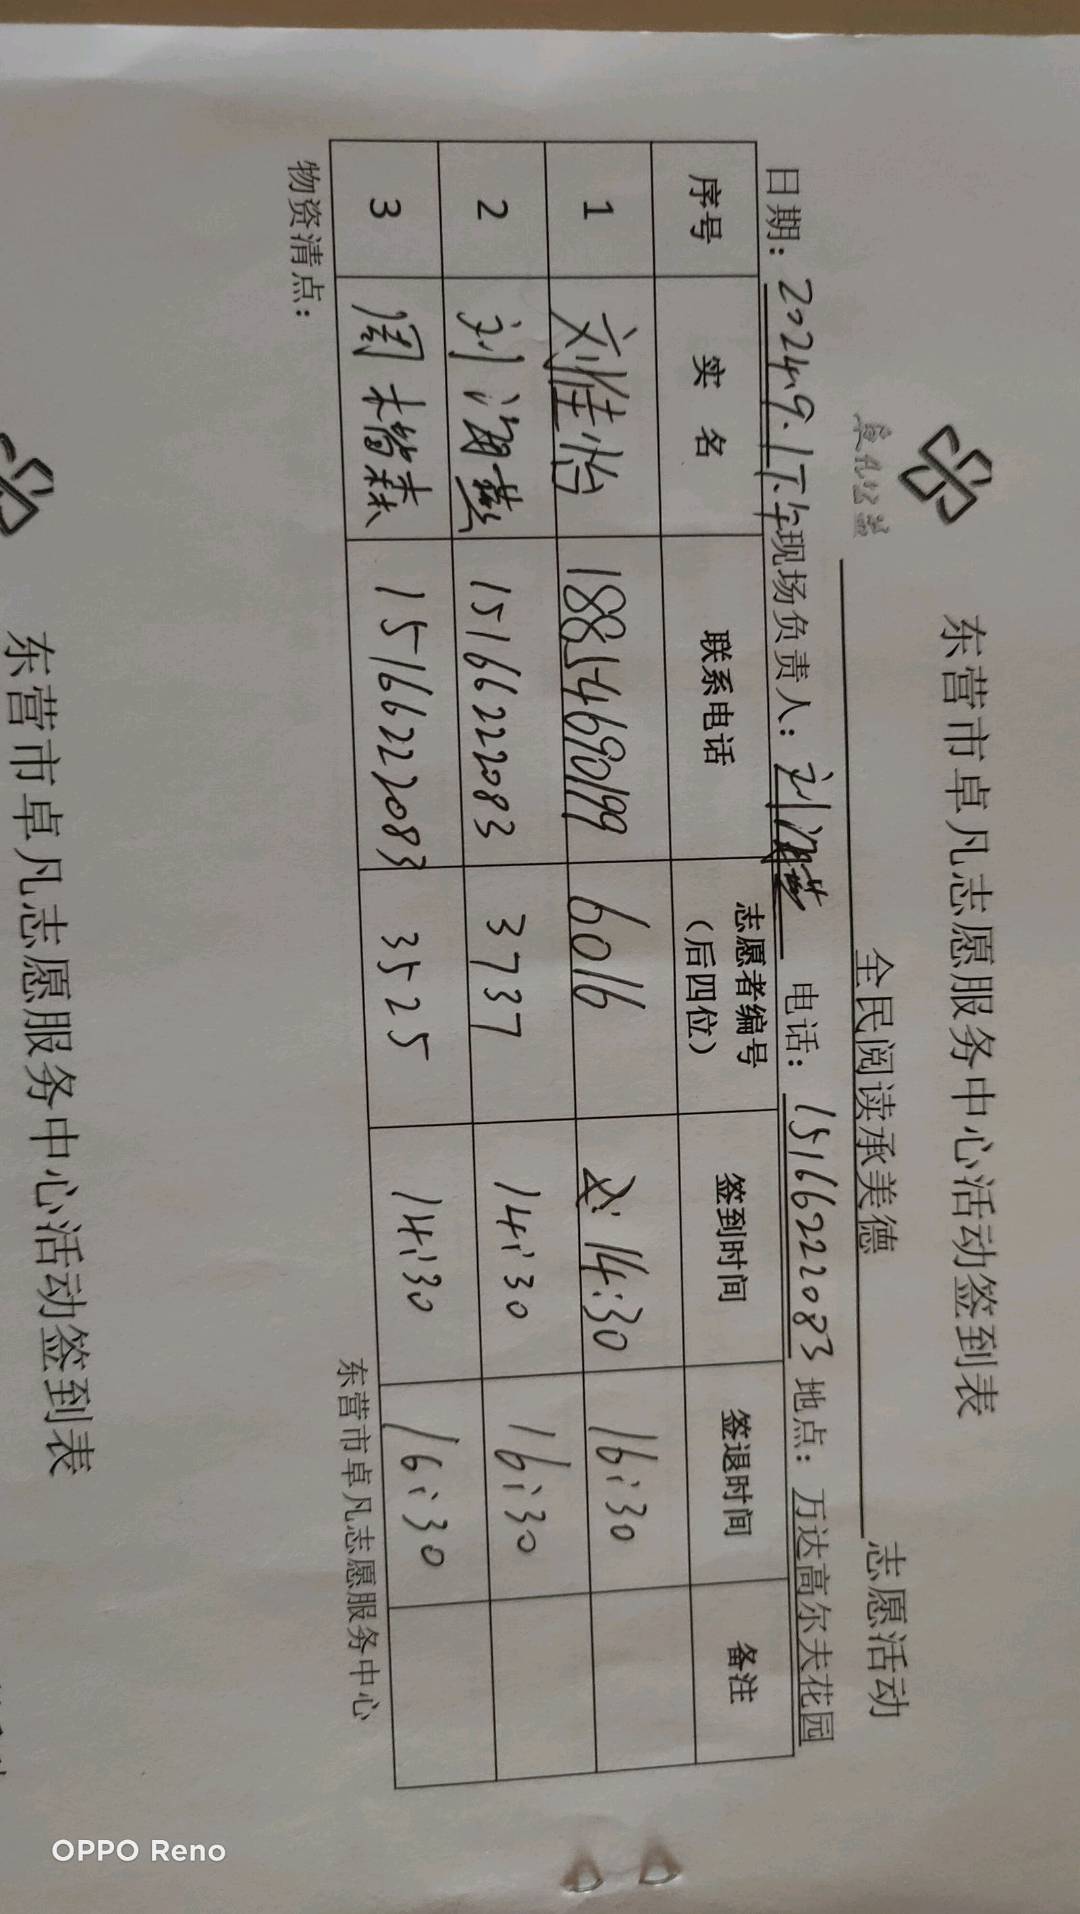 卓凡公益
东营市卓凡志愿服务中心活动签到表
全民阅读承美德 志愿活动
日期：2024.9.1下午 现场负责人：刘海燕 电话：15166222083 地点：万达高尔夫花园
序号 实 名 联系电话 志愿者编号（后四位） 签到时间 签退时间 备注
1 刘佳怡 18854690199 6016 14:30 16:30
2 刘海燕 15166222083 3737 14:30 16:30
3 周 15166222083 3525 14:30 16:30
物资清点：
东营市卓凡志愿服务中心
东营市卓凡志愿服务中心活动签到表
OPPO Reno